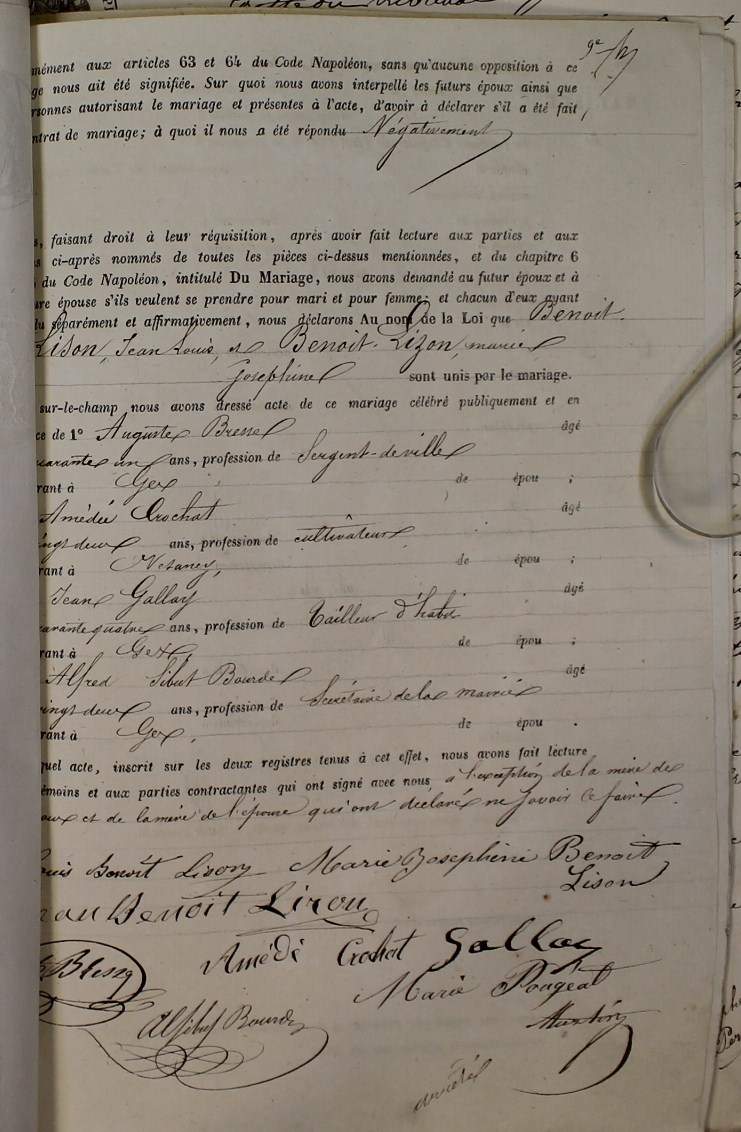 mément aux articles 63 et 64 du Code Napoléon, sans qu'aucune opposition à ce
ge nous ait été signifiée. Sur quoi nous avons interpellé les futurs époux ainsi que
rsonnes autorisant le mariage et présentes à l'acte, d'avoir à déclarer s'il a été fait
ntrat de mariage; à quoi il nous a été répondu Négativement
s, faisant droit à leur réquisition, après avoir fait lecture aux parties et aux
s ci-après nommés de toutes les pièces ci-dessus mentionnées, et du chapitre 6
du Code Napoléon, intitulé Du Mariage, nous avons demandé au futur époux et à
ure épouse s'ils veulent se prendre pour mari et pour femme; et chacun d'eux ayant
du séparément et affirmativement, nous déclarons Au nom de la Loi que Benoit-
Lison, Jean Louis, et Benoit-Lizon, marie
Josephine sont unis par le mariage.
sur-le-champ nous avons dressé acte de ce mariage célébré publiquement et en
ce de 1° Auguste Bresse âgé
uarante un ans, profession de Sergent-de-ville
rant à Gex de épou ;
Amédée Crochat âgé
ingt deux ans, profession de cultivateur
rant à de épou ;
Jean Gallay âgé
uarante quatre ans, profession de tailleur d'habit
rant à Gex, de épou ;
Alfred Sibut Bourde âgé
ingt deux ans, profession de Secrétaire de la mairie
rant à Gex, de épou .
quel acte, inscrit sur les deux registres tenus à cet effet, nous avons fait lecture
émoins et aux parties contractantes qui ont signé avec nous à l'exception de la mère de
oux et de la mère de l'épouse qui ont déclaré ne savoir le faire.
ouis Benoît Lison Marie Josephine Benoit
Lison
Benoit Lizon
Amédé Crochat Gallay
Marie Pougéat
Bourde